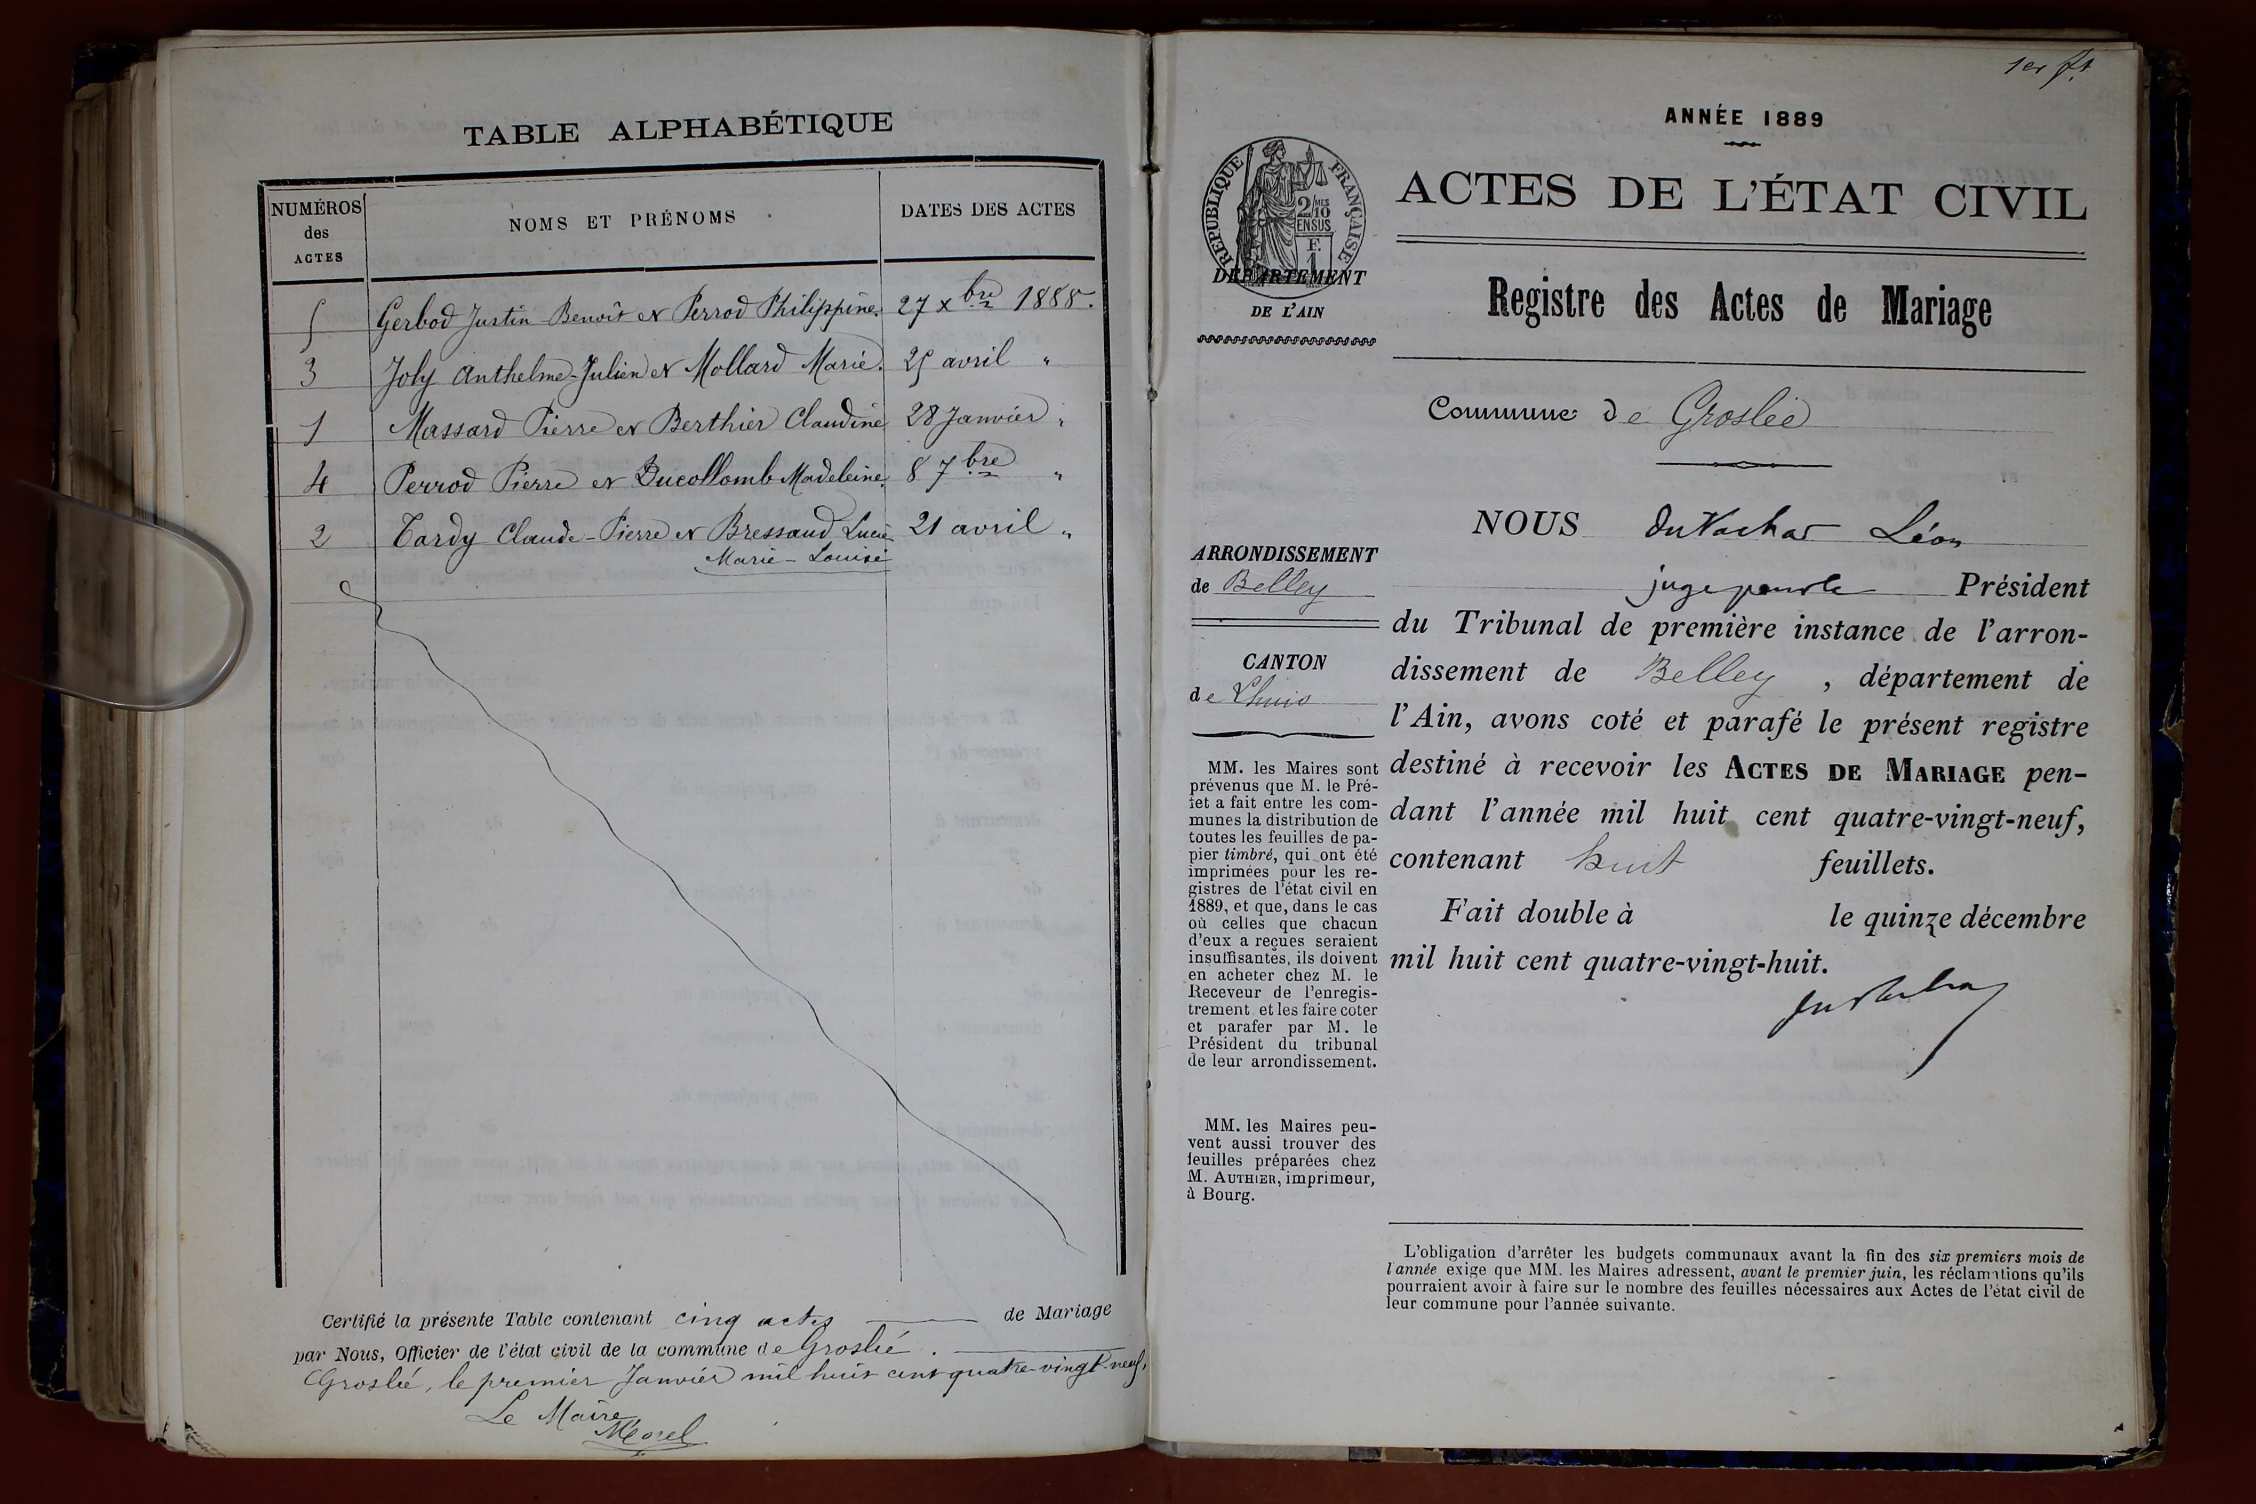 TABLE ALPHABÉTIQUE
NUMÉROS des ACTES
NOMS ET PRÉNOMS
DATES DES ACTES
5 Gerbod Justin Benoît et Perrod Philippine. 27 xbre 1888.
3 Joly Anthelme-Julien et Mollard Marie. 25 avril "
1 Massard Pierre et Berthier Claudine 28 Janvier "
4 Perrod Pierre et Ducollomb Madeleine. 8 7bre "
2 Tardy Claude-Pierre et Bressaud Lucie 21 avril "
Marie-Louise
Certifié la présente Table contenant cinq actes de Mariage
par Nous, Officier de l'état civil de la commune de Groslée.
Groslée, le premier Janvier mil huit cent quatre-vingt-neuf.
Le Maire
Morel
1er ft
ANNÉE 1889
ACTES DE L'ÉTAT CIVIL
RÉPUBLIQUE FRANÇAISE
2/10 MES
EN SUS
F.
1
DÉPARTEMENT
DE L'AIN
Registre des Actes de Mariage
Commune de Groslée
ARRONDISSEMENT
de Belley
CANTON
de Lhuis
MM. les Maires sont
prévenus que M. le Pré-
fet a fait entre les com-
munes la distribution de
toutes les feuilles de pa-
pier timbré, qui ont été
imprimées pour les re-
gistres de l'état civil en
1889, et que, dans le cas
où celles que chacun
d'eux a reçues seraient
insuffisantes, ils doivent
en acheter chez M. le
Receveur de l'enregis-
trement et les faire coter
et parafer par M. le
Président du tribunal
de leur arrondissement.
MM. les Maires peu-
vent aussi trouver des
feuilles préparées chez
M. AUTHIER, imprimeur,
à Bourg.
NOUS Léon
juge pour le Président
du Tribunal de première instance de l'arron-
dissement de Belley, département de
l'Ain, avons coté et parafé le présent registre
destiné à recevoir les ACTES DE MARIAGE pen-
dant l'année mil huit cent quatre-vingt-neuf,
contenant huit feuillets.
Fait double à le quinze décembre
mil huit cent quatre-vingt-huit.
L'obligation d'arrêter les budgets communaux avant la fin des six premiers mois de
l'année exige que MM. les Maires adressent, avant le premier juin, les réclamations qu'ils
pourraient avoir à faire sur le nombre des feuilles nécessaires aux Actes de l'état civil de
leur commune pour l'année suivante.